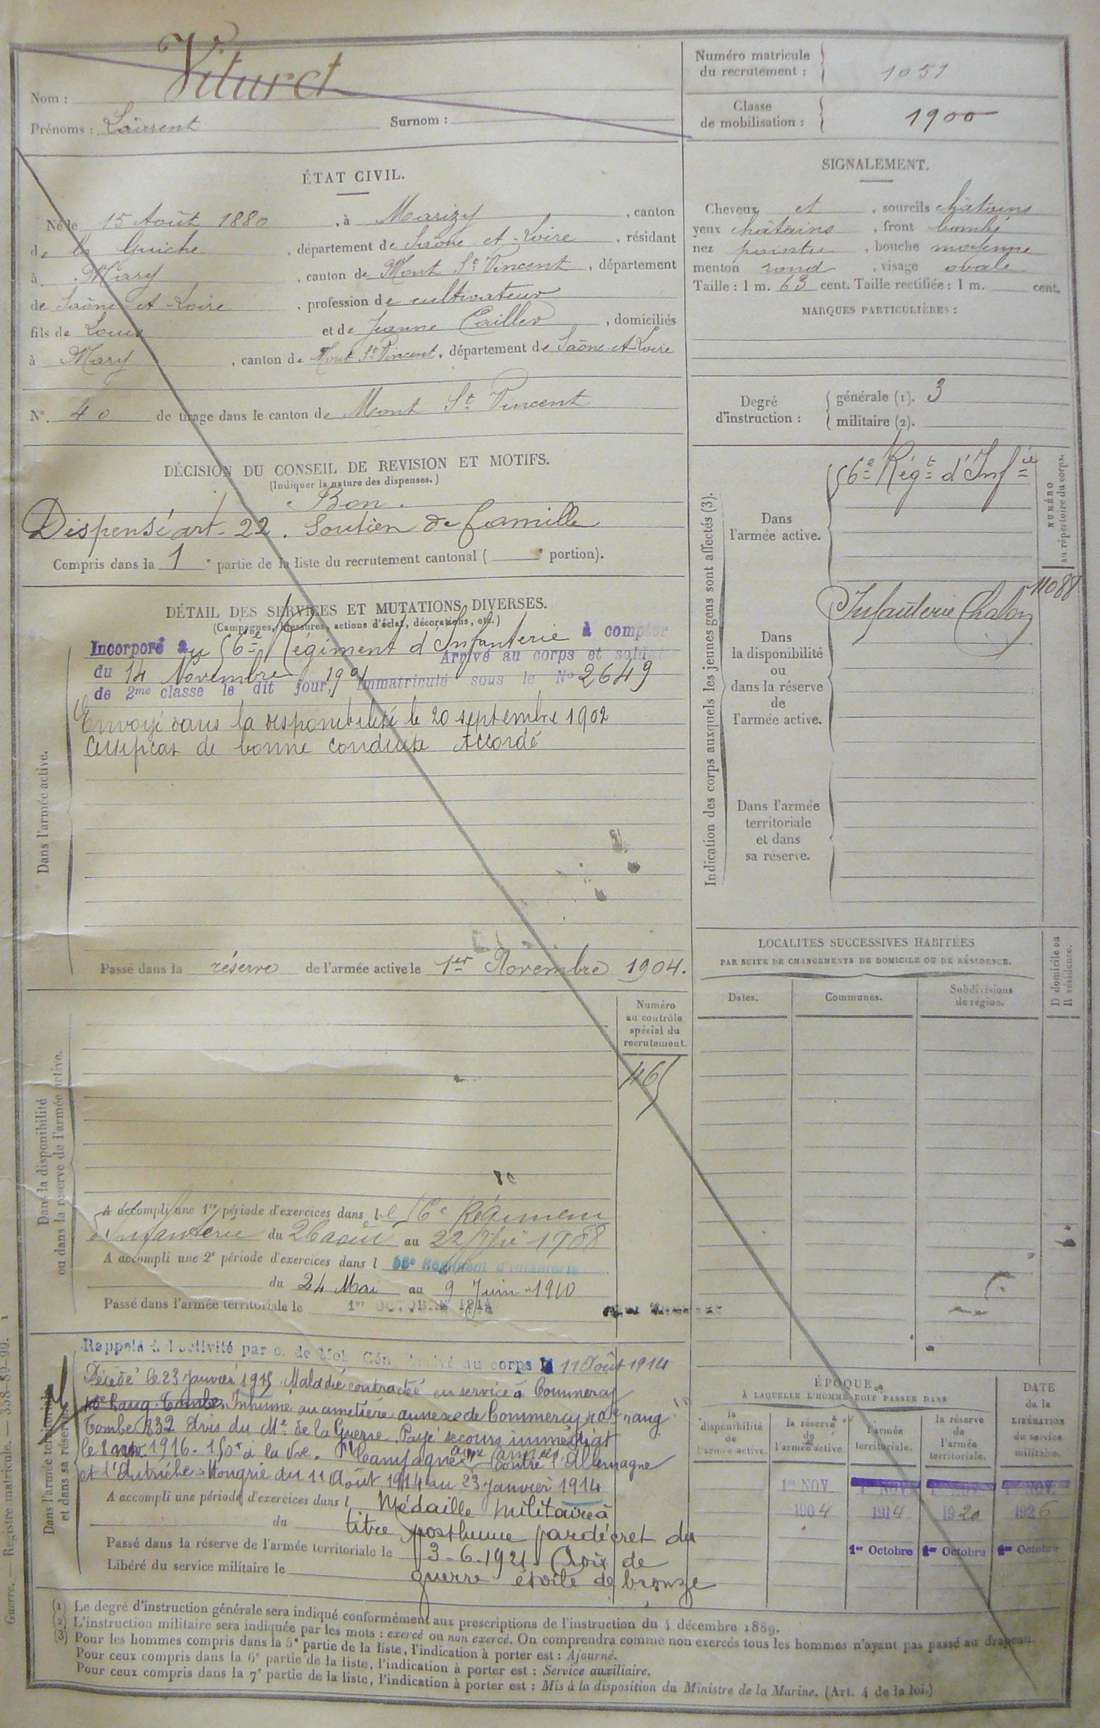 Nom : Vituret
Prénoms : Laurent Surnom :
Numéro matricule du recrutement : 1051
Classe de mobilisation : 1900
ÉTAT CIVIL.
Né le 15 Août 1880, à Marizy, canton
de la Guiche, département de Saône et Loire, résidant
à Mary, canton de Mont St Vincent, département
de Saône-et-Loire, profession de cultivateur
fils de Louis et de Jeanne, domiciliés
à Mary, canton de Mont St Vincent, département de Saône-et-Loire
N°. 40 de tirage dans le canton de Mont St Vincent
SIGNALEMENT.
Cheveux et, sourcils châtains
yeux châtains, front bombé
nez pointu, bouche moyenne
menton rond, visage ovale
Taille : 1 m. 63 cent. Taille rectifiée : 1 m. cent.
MARQUES PARTICULIÈRES :
Degré d'instruction : générale (1). 3
militaire (2).
DÉCISION DU CONSEIL DE REVISION ET MOTIFS.
(Indiquer la nature des dispenses.)
Bon.
Dispensé art. 22. Soutien de famille
Compris dans la 1e partie de la liste du recrutement cantonal ( e portion).
Indication des corps auxquels les jeunes gens sont affectés (3).
NUMÉRO
au répertoire du corps.
Dans
l'armée active.
56e Régt d'Infie
11088
Dans
la disponibilité
ou
dans la réserve
de
l'armée active.
Infanterie Chalon
Dans l'armée
territoriale
et dans
sa reserve.
DÉTAIL DES SERVICES ET MUTATIONS DIVERSES.
(Campagnes, blessures, actions d'éclat, décorations, etc.)
Dans l'armée active.
Incorporé au 56e Régiment d'Infanterie à compter
du 14 Novembre 1901 Arrivé au corps et soldat
de 2me classe le dit jour, Immatriculé sous le No 2649
Envoyé dans la disponibilité le 20 septembre 1902
Certificat de bonne conduite Accordé
Passé dans la réserve de l'armée active le 1er Novembre 1904.
LOCALITÉS SUCCESSIVES HABITÉES
PAR SUITE DE CHANGEMENTS DE DOMICILE OU DE RÉSIDENCE.
Dates. Communes. Subdivisions de région. D domicile ou R résidence.
Dans la disponibilité
ou dans la réserve de l'armée active.
Numéro
au contrôle
spécial du
recrutement.
A accompli une 1re période d'exercices dans le 56e Régiment
d'Infanterie du 26 août au 22 1908
A accompli une 2e période d'exercices dans l 56e Régiment d'Infanterie
du 24 Mai au 9 Juin 1910
Passé dans l'armée territoriale le 1er OCTOBRE 1914
Dans l'armée territoriale
et dans sa réserve.
Rappelé à l'activité par o. de Mob. Gén. Arrivé au corps le 11 Août 1914
Décédé le 23 janvier 1915 Maladie contractée en service à Commercy
Inhumé au cimetière annexe de Commercy 10e rang
Tombe 832 Avis du Me de la Guerre. Payé secours immédiat
le 1916 - 150f à la Vve. Campagne contre l'Allemagne
et l'Autriche-Hongrie du 11 Août 1914 au 23 janvier 1914
A accompli une période d'exercices dans l Médaille militaire à
du titre posthume par décret du
Passé dans la réserve de l'armée territoriale le 3-6-1921 Croix de
Libéré du service militaire le guerre étoile de bronze
ÉPOQUE
À LAQUELLE L'HOMME DOIT PASSER DANS
la disponibilité de l'armée active. la réserve de l'armée active. l'armée territoriale. la réserve de l'armée territoriale.
DATE
de la
LIBÉRATION
du service
militaire.
1er NOV
1904 1914 1920 1926
1er Octobre 1er Octobre 1er Octobre
(1) Le degré d'instruction générale sera indiqué conformément aux prescriptions de l'instruction du 4 décembre 1889.
(2) L'instruction militaire sera indiquée par les mots : exercé ou non exercé. On comprendra comme non exercés tous les hommes n'ayant pas passé au drapeau.
(3) Pour les hommes compris dans la 5e partie de la liste, l'indication à porter est : Ajourné.
Pour ceux compris dans la 6e partie de la liste, l'indication à porter est : Service auxiliaire.
Pour ceux compris dans la 7e partie de la liste, l'indication à porter est : Mis à la disposition du Ministre de la Marine. (Art. 4 de la loi.)
Guerre. — Registre matricule. — 338-89-99.